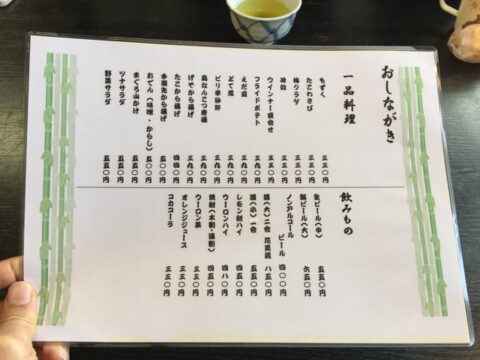 おしながき
一品料理
もずく 三三〇円
たこわさび 三三〇円
梅クラゲ 三三〇円
冷奴 三三〇円
ウインナー盛合せ 三三〇円
フライドポテト 三九〇円
えだ豆 三九〇円
どて煮 三九〇円
ピリ辛砂肝 三九〇円
鳥なんこつ唐揚 三九〇円
げそから揚げ 三九〇円
たこから揚げ 四四〇円
手羽先から揚げ 五五〇円
おでん(味噌・からし) 五〇〇円
まぐろ山かけ 五五〇円
ツナサラダ 五五〇円
野菜サラダ 五五〇円
飲みもの
生ビール(中) 五五〇円
瓶ビール(大) 六五〇円
ノンアルコール
ビール 四〇〇円
酒(大)二合 花美蔵 八五〇円
酒(小)一合 五五〇円
レモン酎ハイ 四五〇円
ウーロンハイ 四八〇円
焼酎(水割・湯割) 四五〇円
ウーロン茶 三三〇円
オレンジジュース 三三〇円
コカコーラ 三三〇円